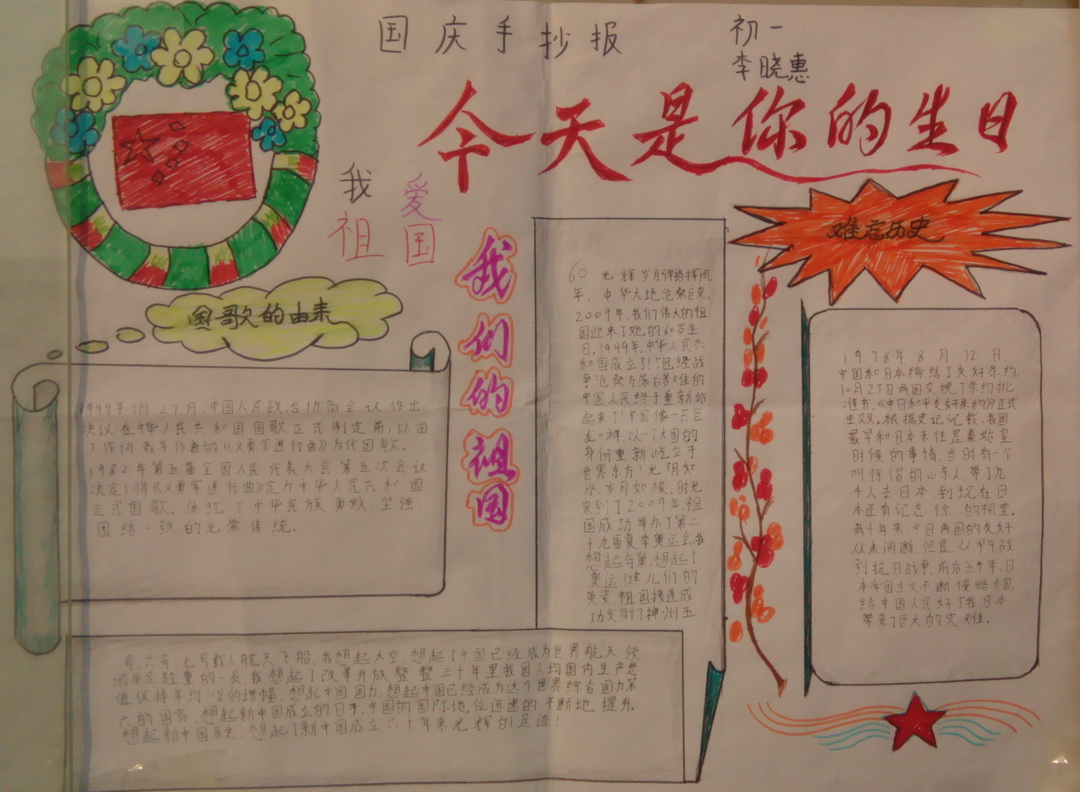 国庆手抄报
初一
李晓惠
今天是你的生日
我爱
祖国
我们的祖国
难忘历史
国歌的由来
1949年9月27日,中国人民政治协商会议作出
决议在中华人民共和国国歌正式制定前,以田
作词 聂耳作曲的《义勇军进行曲》为代国歌。
1982年第五届全国人民代表大会第五次会议
决定《义勇军进行曲》定为中华人民共和国
正式国歌。体现了中华民族勇敢,坚强
团结一致的光荣传统。
60光辉岁月弹指挥间
年,中华大地沧桑巨变,
2009年,我们伟大的祖
国迎来了她的60岁生
日,1949年,中华人民共
和国成立了!饱经战
争沧桑与落后苦难的
中国人民终于重新站
起来了!中国像一只巨
龙一样,以一个大国的
身份重新屹立于
世界东方!光阴如
水,岁月如梭,时光
来到了2009年,祖
国成功举办了第二
十九届夏季奥运会,我
想起鸟巢,想起了
奥运健儿们的
英姿 祖国接连成
功发射了神州五
号,六号,七号载人航天飞船,我想起太空,想起了中国已经成为世界航天领
域举足轻重的一员 我想起了改革开放整整三十年里我国人均国内生产总
值保持年均的增幅,想起中国国力,想起中国已经成为这个世界综合国力第
六的国家,想起新中国成立的日子,中国的国际地位迅速的,不断地提升,
想起新中国历史,想起了新中国成立六十年来光辉的足迹!
1978年8月12日,
中国和日本缔结了友好条约,
10月23日两国交换了条约批
准书,《中日和平友好条约》正式
生效。根据史记记载,我国
最早和日本来往是秦始皇
时候的事情,当时有一个
叫徐福的山东人,带了几
千人去日本,到现在日
本还有记念徐的祠堂。
两千年来,中日两国的友好
从未间断,但是,从甲午战
到抗日战争,前后五十年,日
本帝国主义不断侵略中国
给中国人民好日本
带来了巨大的灾难。